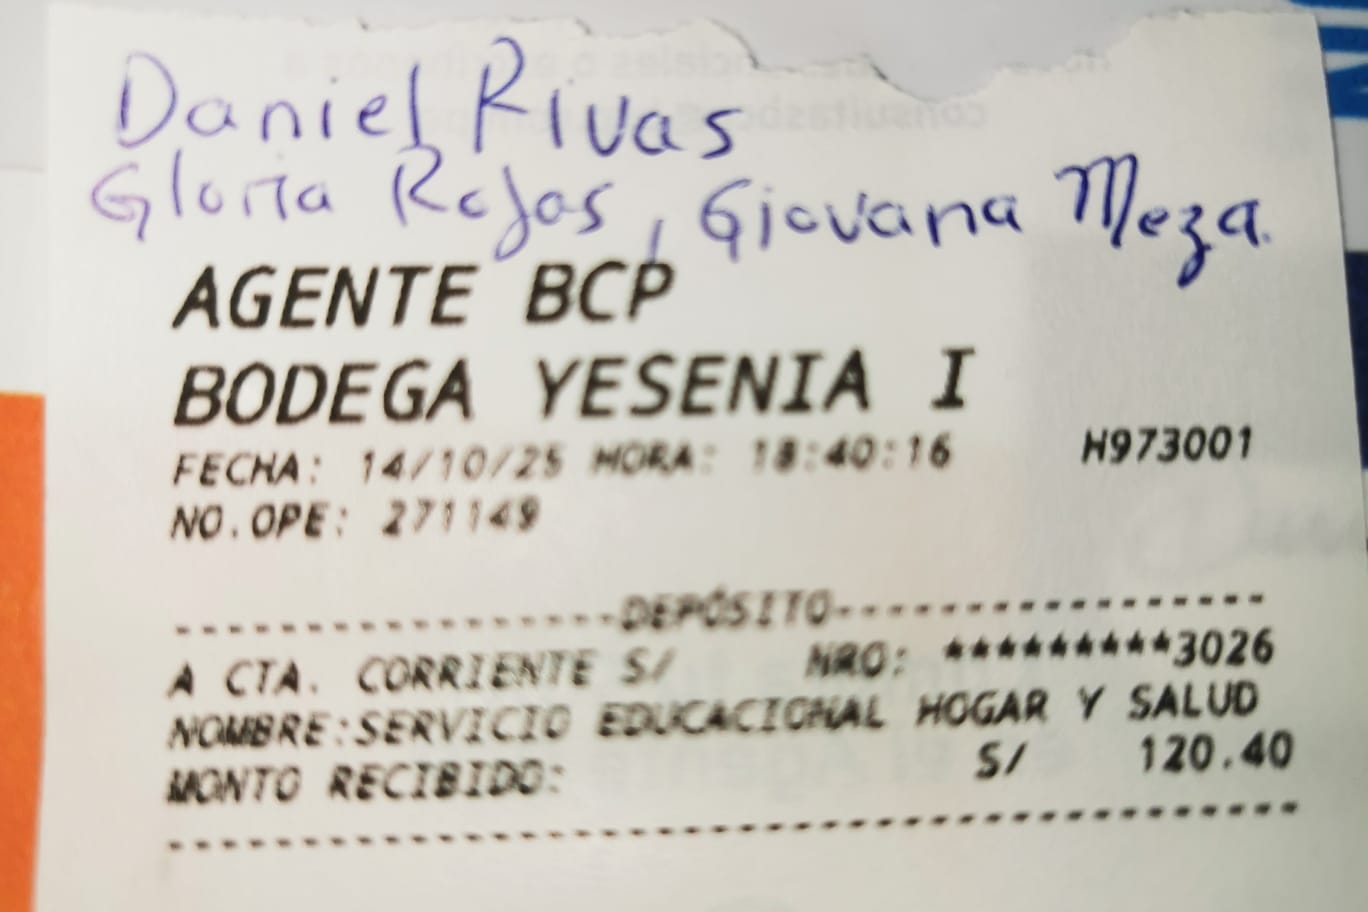 Daniel Rivas
Gloria Rojas, Giovana Meza.
AGENTE BCP
BODEGA YESENIA I
FECHA: 14/10/25 HORA: 18:40:16 H973001
NO.OPE: 271149
----------------DEPÓSITO----------------
A CTA. CORRIENTE S/ NRO: *********3026
NOMBRE:SERVICIO EDUCACIONAL HOGAR Y SALUD
MONTO RECIBIDO: S/ 120.40